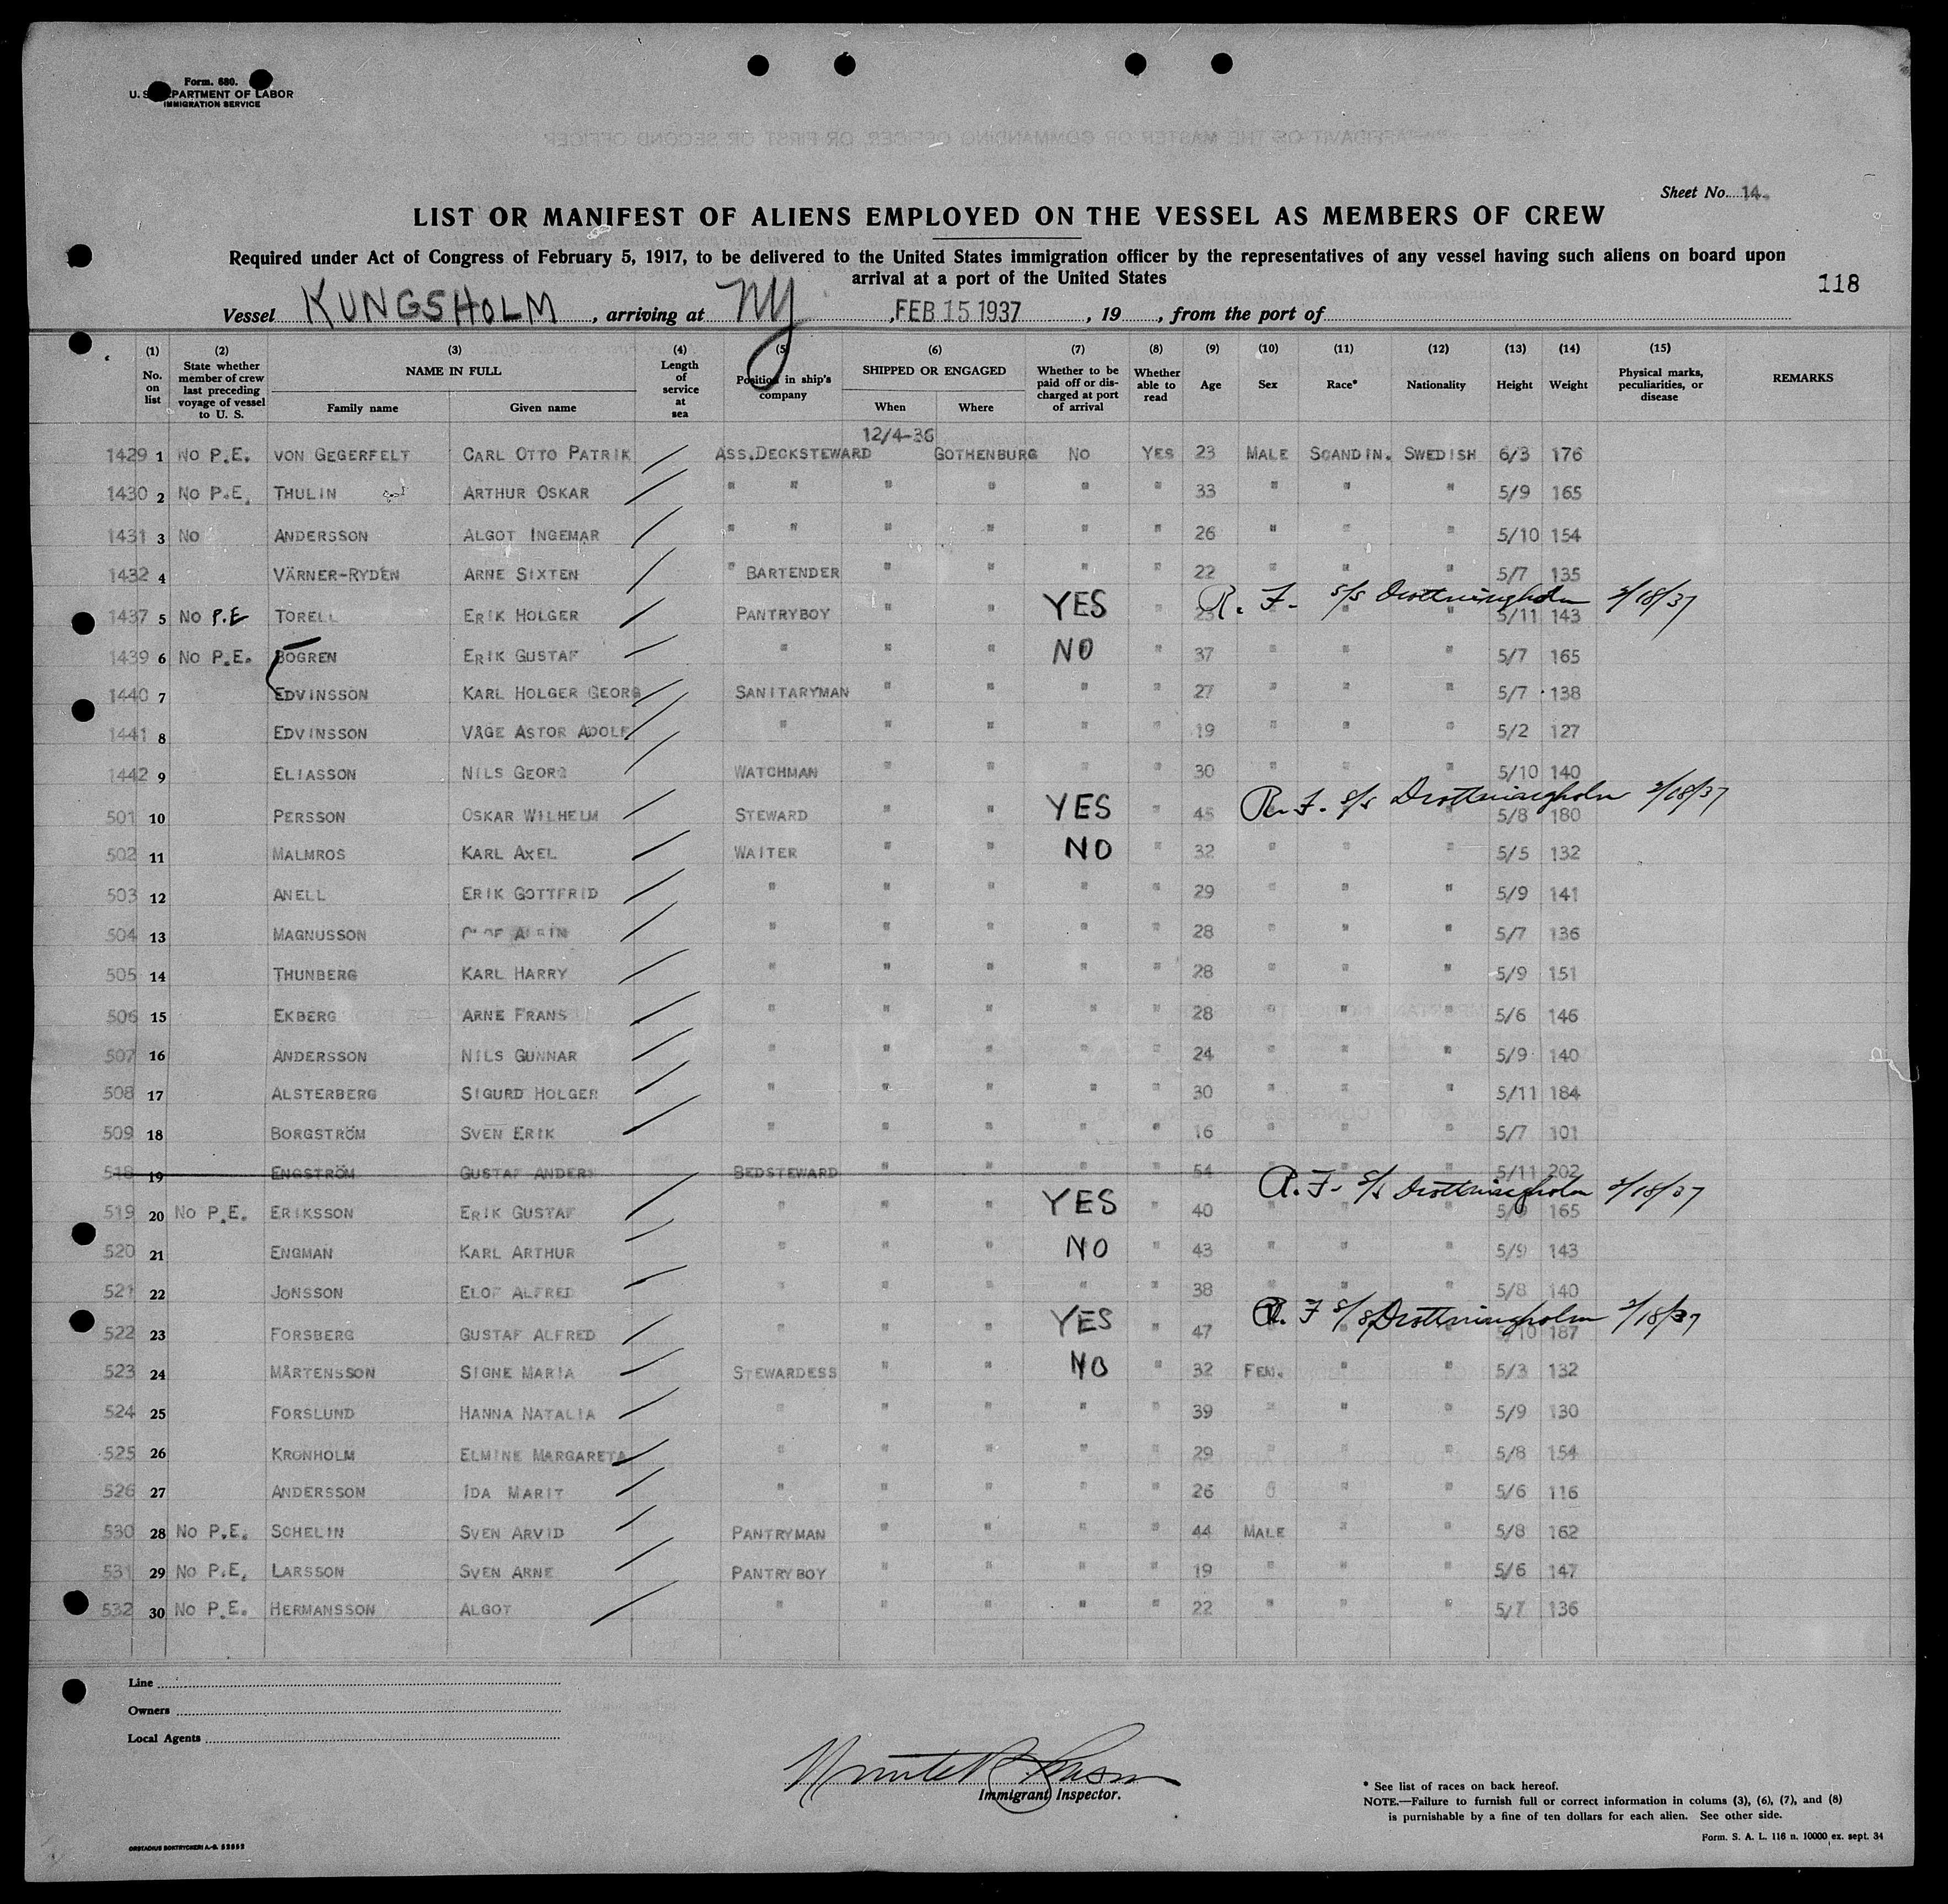 Form. 680.
U. S. DEPARTMENT OF LABOR
IMMIGRATION SERVICE
Sheet No. 14.
LIST OR MANIFEST OF ALIENS EMPLOYED ON THE VESSEL AS MEMBERS OF CREW
Required under Act of Congress of February 5, 1917, to be delivered to the United States immigration officer by the representatives of any vessel having such aliens on board upon
arrival at a port of the United States
118
Vessel KUNGSHOLM, arriving at NY, FEB 15 1937, 19, from the port of
(1) (2) (3) (4) (5) (6) (7) (8) (9) (10) (11) (12) (13) (14) (15)
No. on list State whether member of crew last preceding voyage of vessel to U. S. NAME IN FULL Family name Given name Length of service at sea Position in ship's company SHIPPED OR ENGAGED When Where Whether to be paid off or discharged at port of arrival Whether able to read Age Sex Race* Nationality Height Weight Physical marks, peculiarities, or disease REMARKS
12/4-36
1429 1 NO P.E. VON GEGERFELT CARL OTTO PATRIK ASS.DECKSTEWARD GOTHENBURG NO YES 23 MALE SCANDIN. SWEDISH 6/3 176
1430 2 NO P.E. THULIN ARTHUR OSKAR " " " " " " 33 " " " 5/9 165
1431 3 NO ANDERSSON ALGOT INGEMAR " " " " " " 26 " " " 5/10 154
1432 4 VÄRNER-RYDÉN ARNE SIXTEN " BARTENDER " " " " 22 " " " 5/7 135
1437 5 NO P.E TORELL ERIK HOLGER PANTRYBOY " " YES " R. F. S/S Drottningholm 2/18/37 5/11 143
1439 6 NO P.E. BOGREN ERIK GUSTAF " " " NO " 37 " " " 5/7 165
1440 7 EDVINSSON KARL HOLGER GEORG SANITARYMAN " " " " 27 " " " 5/7 138
1441 8 EDVINSSON VÅGE ASTOR ADOLF " " " " " 19 " " " 5/2 127
1442 9 ELIASSON NILS GEORG WATCHMAN " " " " 30 " " " 5/10 140
501 10 PERSSON OSKAR WILHELM STEWARD " " YES " 45 R. F. S/S Drottningholm 2/18/37 5/8 180
502 11 MALMROS KARL AXEL WAITER " " NO " 32 " " " 5/5 132
503 12 ANELL ERIK GOTTFRID " " " " " 29 " " " 5/9 141
504 13 MAGNUSSON " " " " " 28 " " " 5/7 136
505 14 THUNBERG KARL HARRY " " " " " 28 " " " 5/9 151
506 15 EKBERG ARNE FRANS " " " " " 28 " " " 5/6 146
507 16 ANDERSSON NILS GUNNAR " " " " " 24 " " " 5/9 140
508 17 ALSTERBERG SIGURD HOLGER " " " " " 30 " " " 5/11 184
509 18 BORGSTRÖM SVEN ERIK " " " " " 16 " " " 5/7 101
518 19 ENGSTRÖM GUSTAF ANDERS BEDSTEWARD " " " " 54 " " " 5/11 202
519 20 NO P.E. ERIKSSON ERIK GUSTAF " " " YES " 40 R. F. S/S Drottningholm 2/18/37 165
520 21 ENGMAN KARL ARTHUR " " " NO " 43 " " " 5/9 143
521 22 JONSSON ELOF ALFRED " " " " " 38 " " " 5/8 140
522 23 FORSBERG GUSTAF ALFRED " " " YES " 47 R. F S/S Drottningholm 2/18/37 5/10 187
523 24 MÅRTENSSON SIGNE MARIA STEWARDESS " " NO " 32 FEM. " " 5/3 132
524 25 FORSLUND HANNA NATALIA " " " " " 39 " " " 5/9 130
525 26 KRONHOLM ELMINE MARGARETA " " " " " 29 " " " 5/8 154
526 27 ANDERSSON IDA MARIT " " " " " 26 " " " 5/6 116
530 28 NO P.E. SCHELIN SVEN ARVID PANTRYMAN " " " " 44 MALE " " 5/8 162
531 29 NO P.E. LARSSON SVEN ARNE PANTRYBOY " " " " 19 " " " 5/6 147
532 30 NO P.E. HERMANSSON ALGOT " " " " " 22 " " " 5/7 136
Line
Owners
Local Agents
Immigrant Inspector.
* See list of races on back hereof.
NOTE.—Failure to furnish full or correct information in colums (3), (6), (7), and (8)
is purnishable by a fine of ten dollars for each alien. See other side.
Form. S. A. L. 116 n. 10000 ex. sept. 34